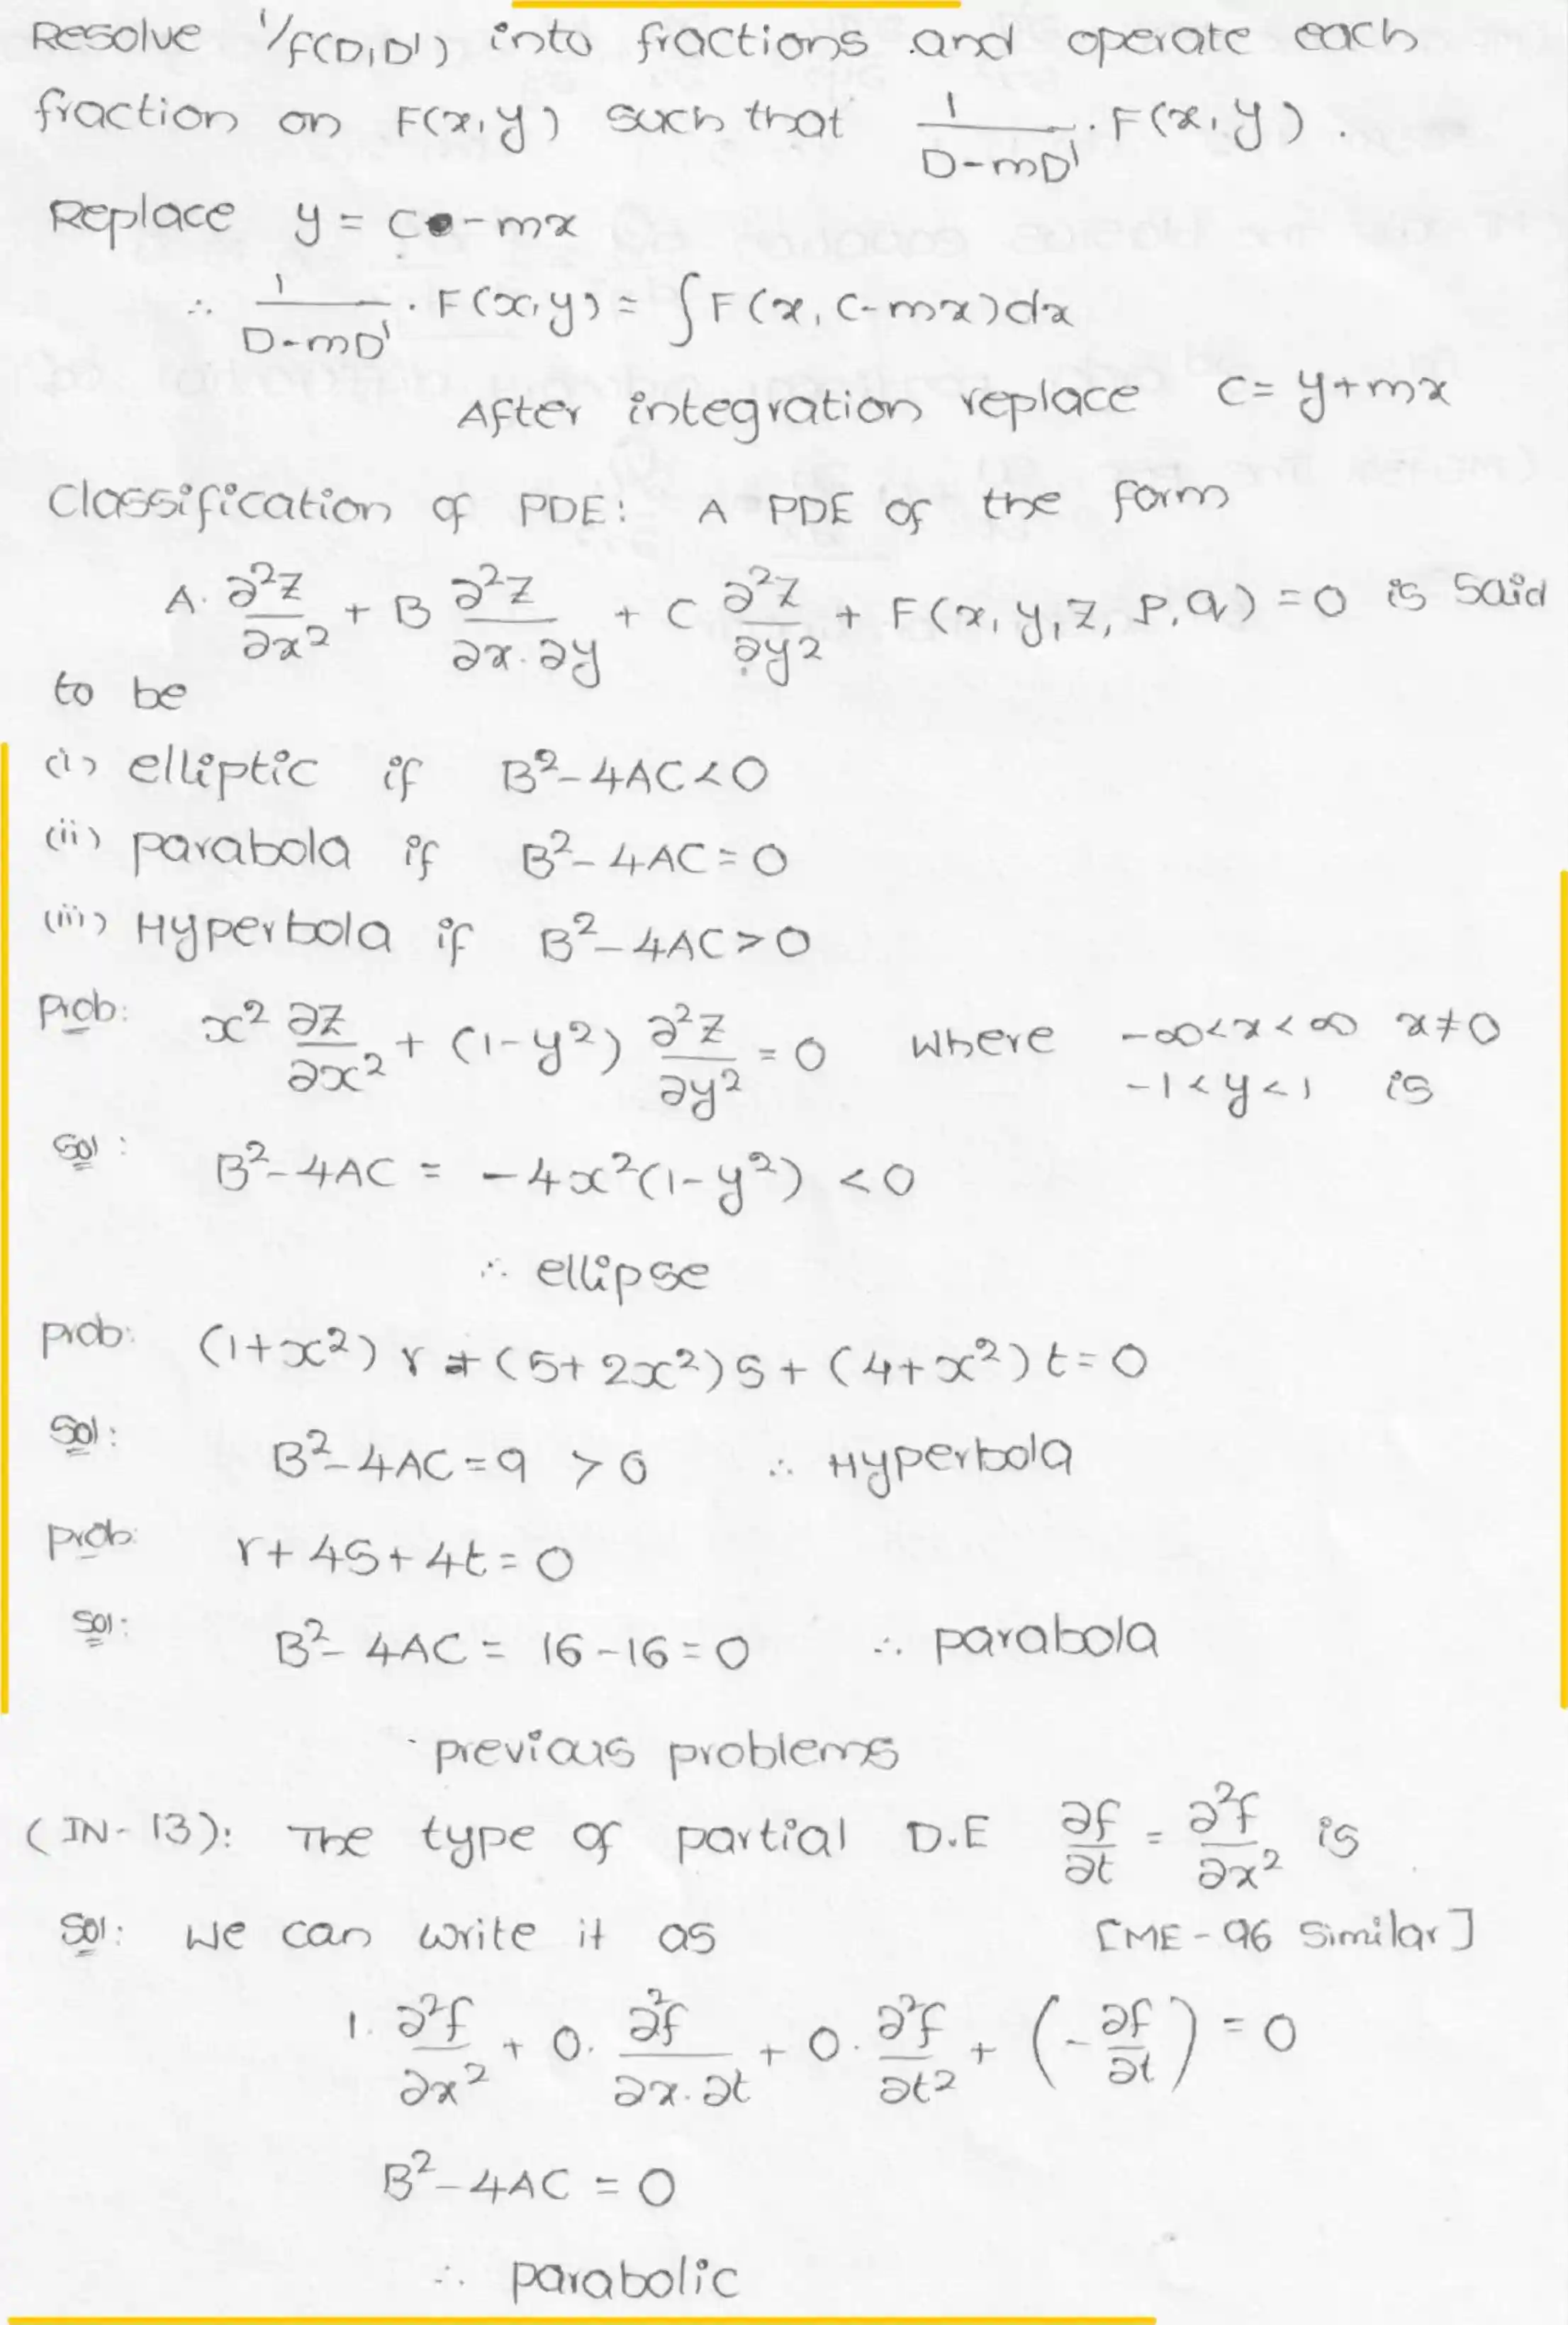 Resolve 1/f(D,D') into fractions and operate each
fraction on F(x,y) such that 1/(D-mD') . F(x,y).
Replace y = c - mx
∴ 1/(D-mD') . F(x,y) = ∫F(x, c-mx)dx
After integration replace c = y+mx
Classification of PDE: A PDE of the form
A. ∂²z/∂x² + B ∂²z/∂x.∂y + C ∂²z/∂y² + F(x, y, z, P, q) = 0 is said
to be
(i) elliptic if B²-4AC<0
(ii) parabola if B²-4AC=0
(iii) Hyperbola if B²-4AC>0
Prob: x² ∂z/∂x² + (1-y²) ∂²z/∂y² = 0 where -∞<x<∞ x≠0
-1<y<1 is
Sol: B²-4AC = -4x²(1-y²) <0
∴ ellipse
prob: (1+x²) r + (5+2x²)s + (4+x²)t=0
Sol: B²-4AC=9 >0 ∴ Hyperbola
prob: r+4s+4t=0
Sol: B²-4AC = 16-16=0 ∴ parabola
previous problems
(IN-13): The type of partial D.E ∂f/∂t = ∂²f/∂x² is
Sol: we can write it as [ME-96 Similar]
1. ∂²f/∂x² + 0. ∂²f/∂x.∂t + 0. ∂²f/∂t² + (-∂f/∂t) = 0
B²-4AC = 0
∴ parabolic